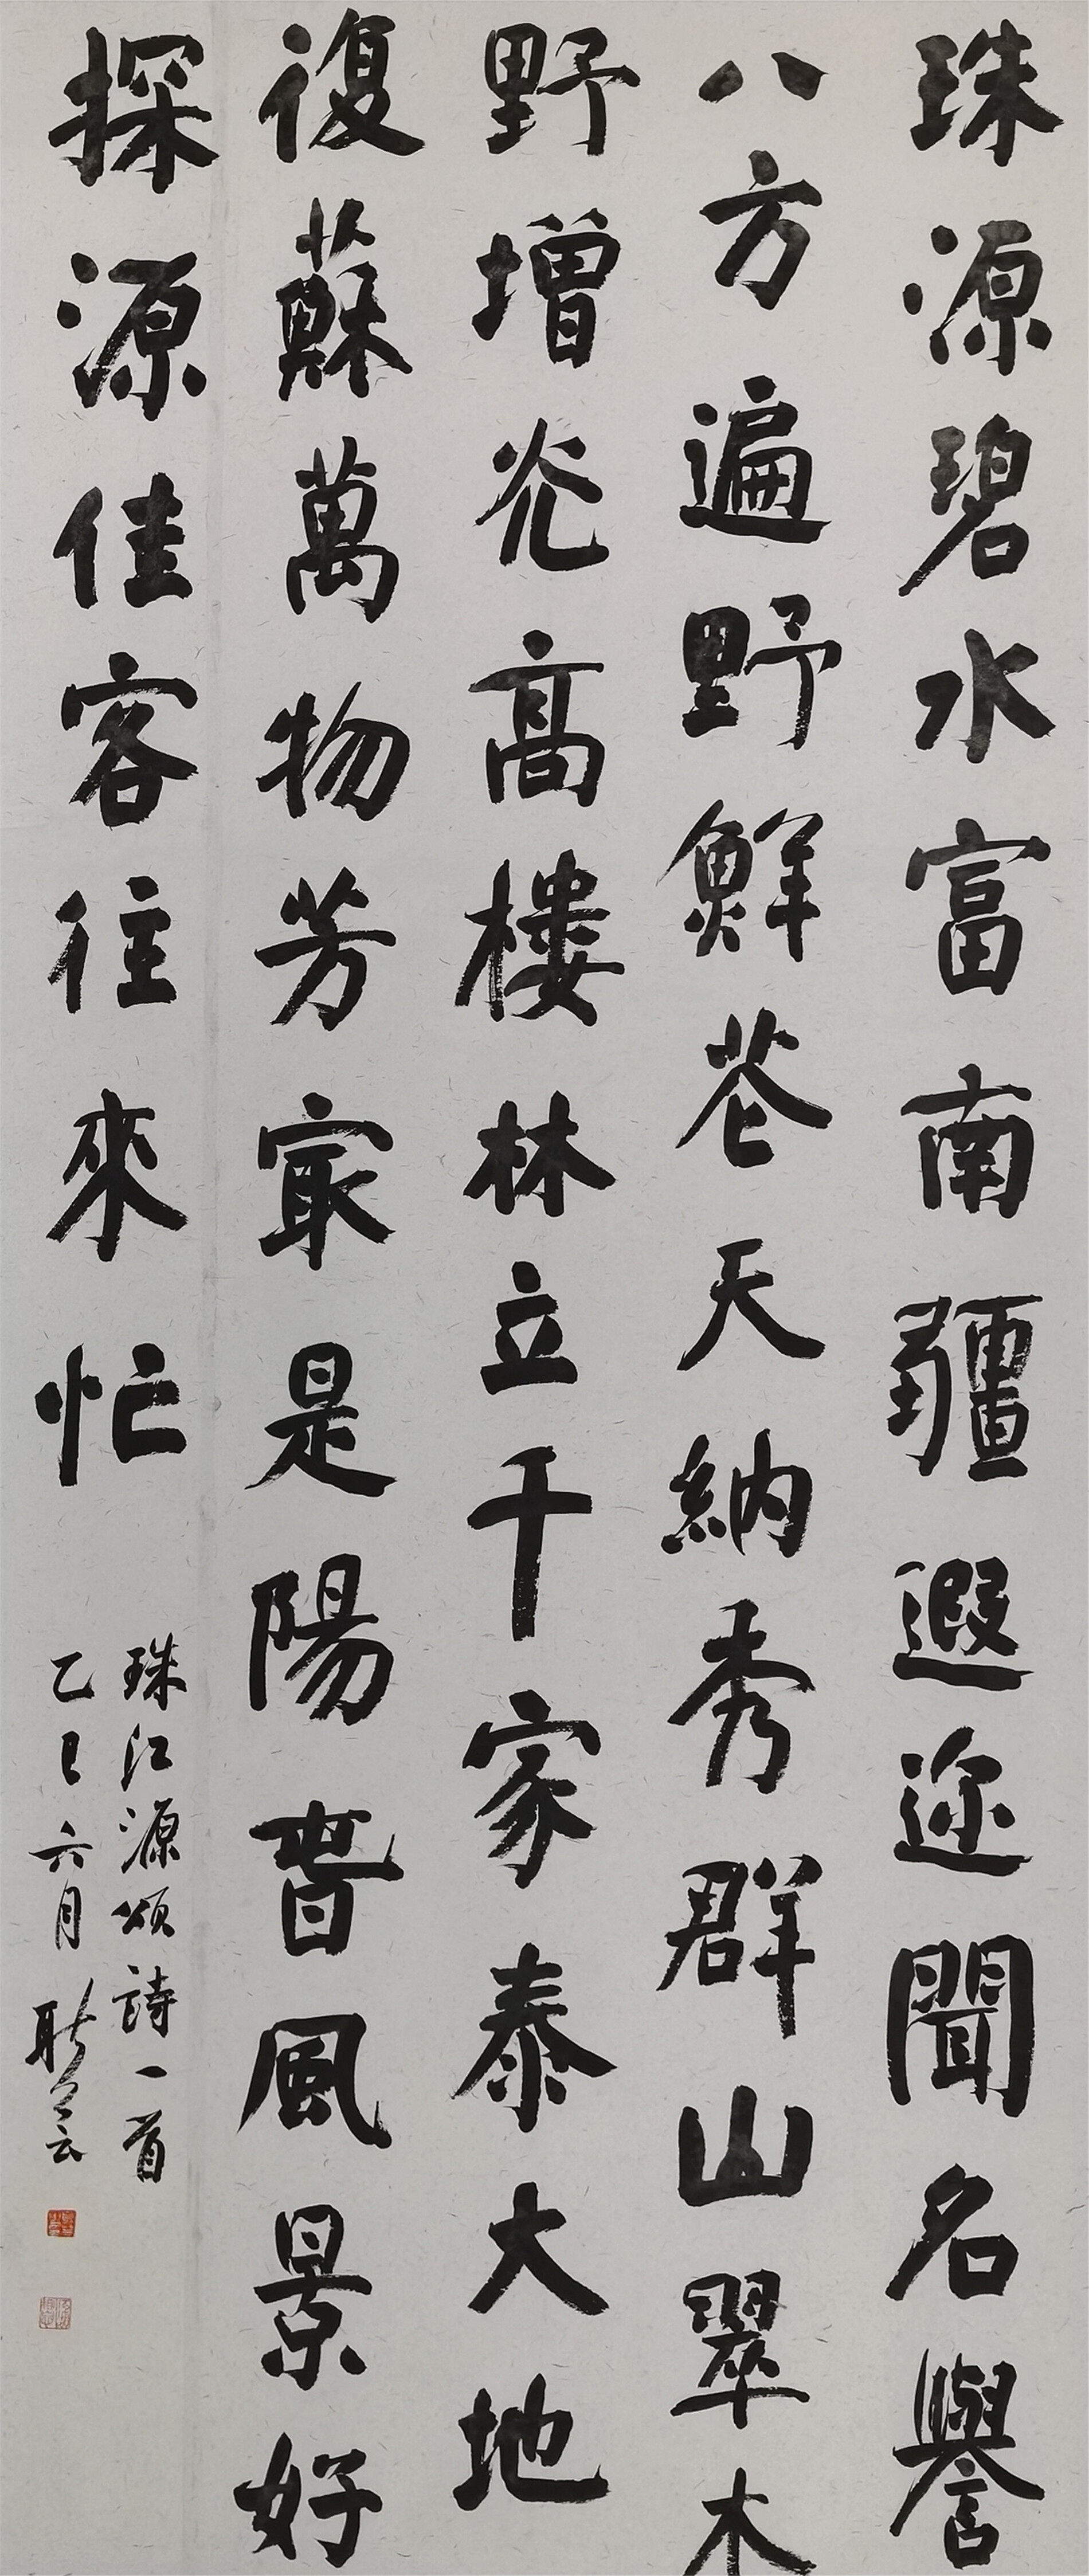 珠源碧水富南疆遐迩聞名譽
八方遍野鮮花天納秀群山翠木
野增光高樓林立千家泰大地
復蘇萬物芳最是陽春風景好
探源佳客往來忙
珠江源頌詩一首
乙巳六月耿云